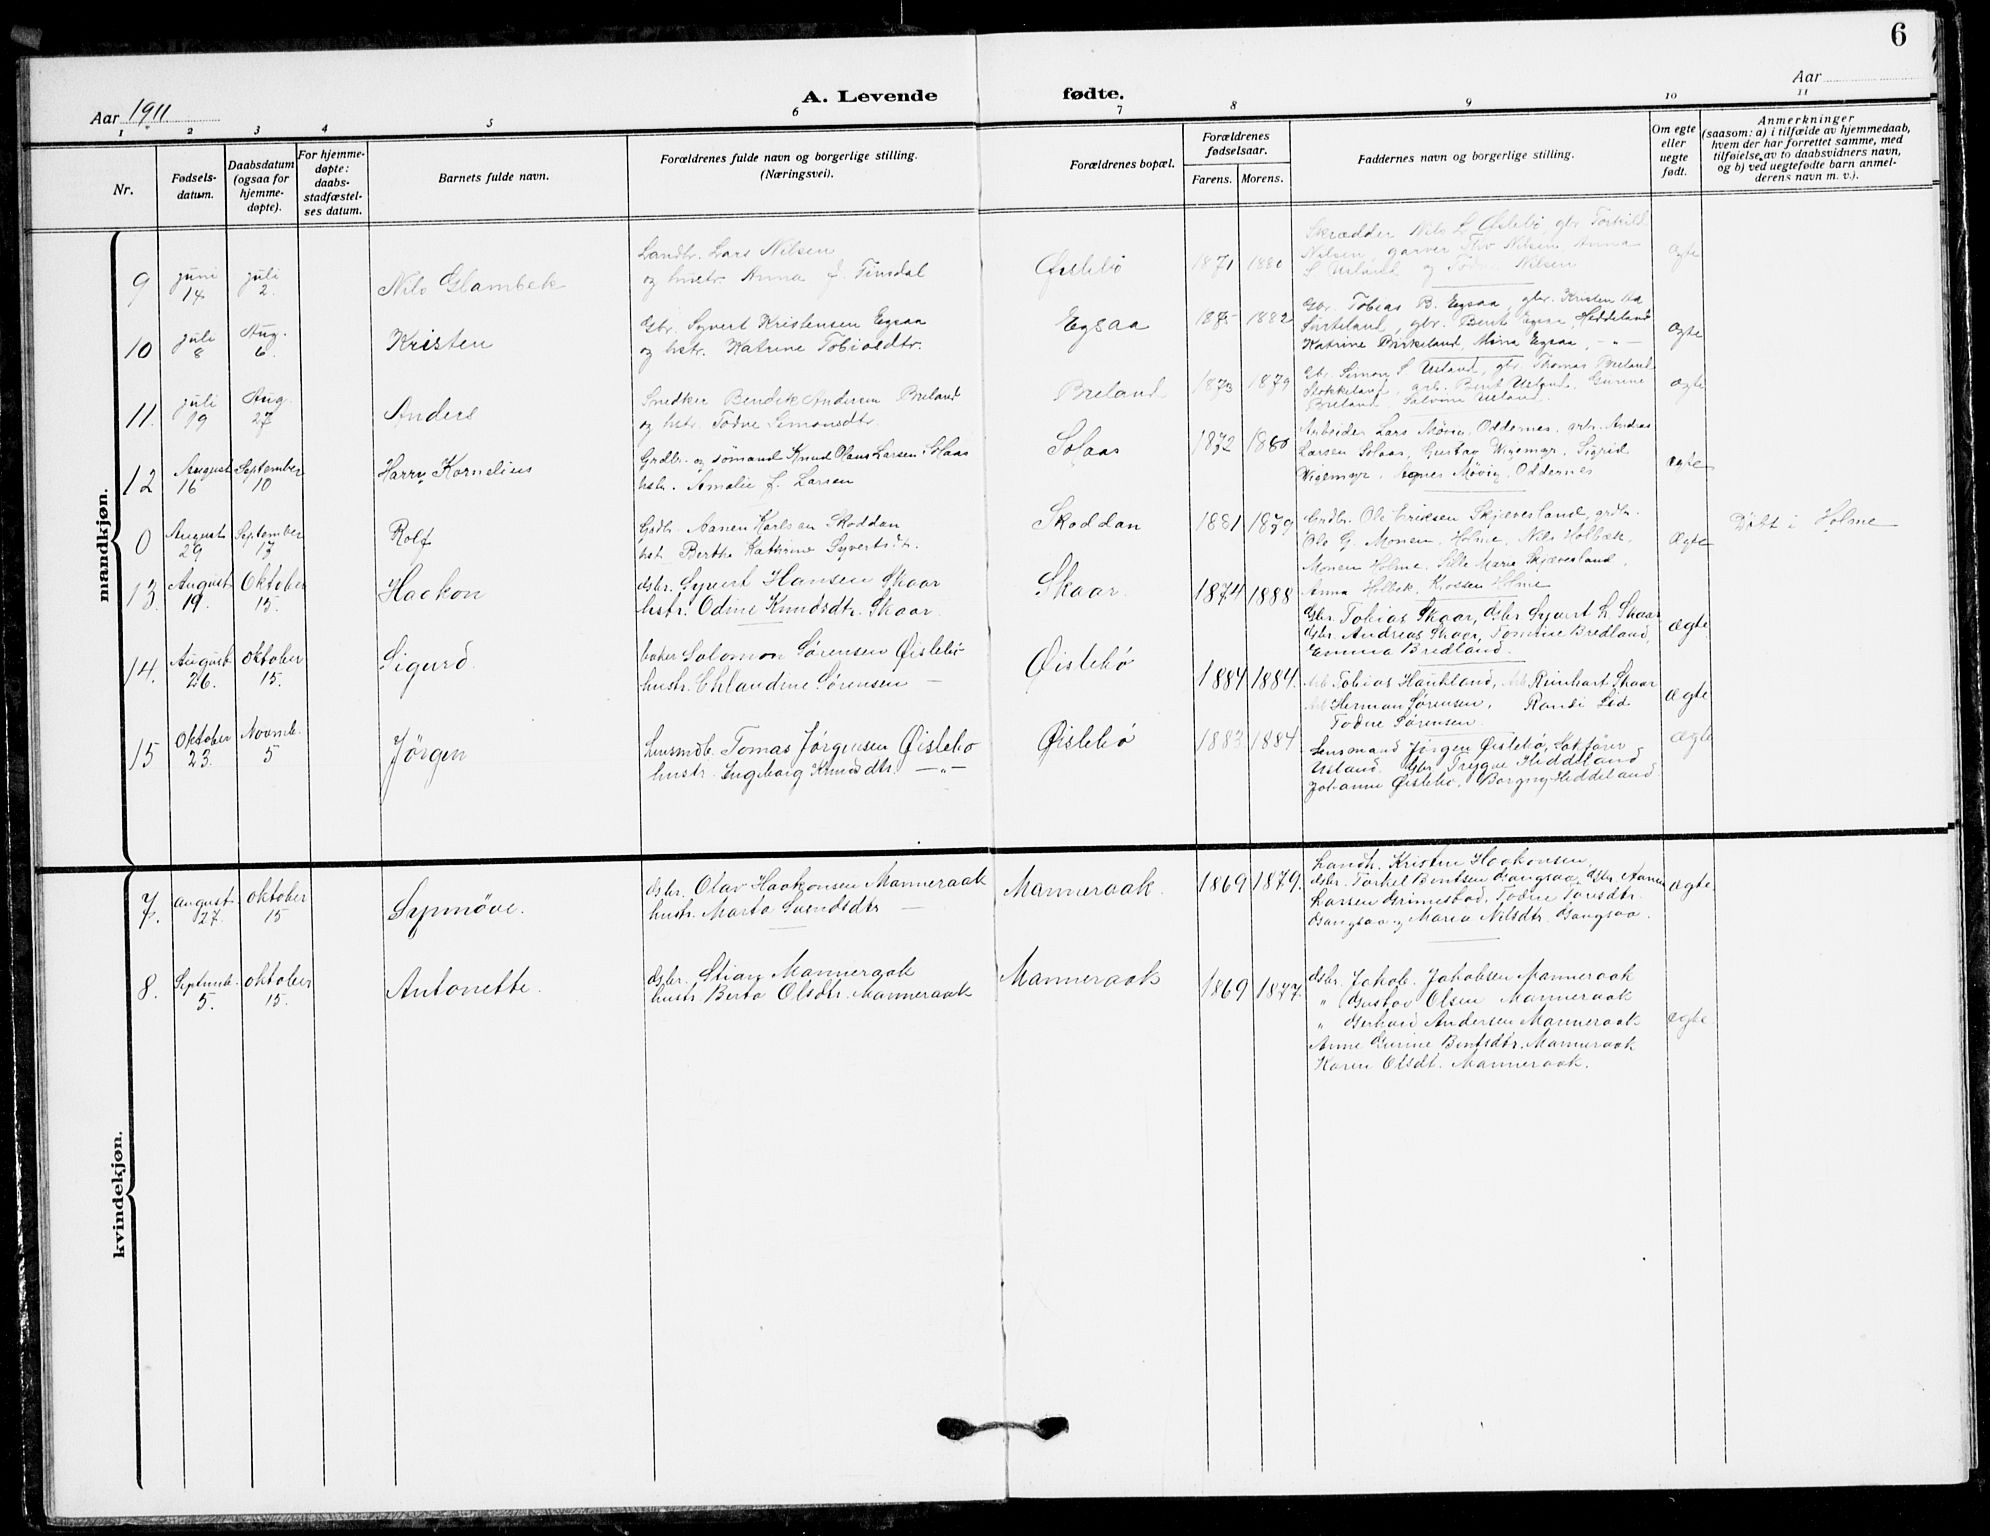 6
Aar 1911
A. Levende fødte.
Aar
1 2 3 4 5 6 7 8 9 10 11
Nr.
Fødsels-
datum.
Daabsdatum
(ogsaa for
hjemme-
døpte).
For hjemme-
døpte:
daabs-
stadfæstel-
ses datum.
Barnets fulde navn.
Forældrenes fulde navn og borgerlige stilling.
(Næringsvei).
Forældrenes bopæl.
Forældrenes
fødselsaar.
Farens. Morens.
Faddernes navn og borgerlige stilling.
Om egte
eller
uegte
født.
Anmerkninger
(saasom: a) i tilfælde av hjemmedaab,
hvem der har forrettet samme, med
tilføielse av to daabsvidners navn,
og b) ved uegtefødte barn anmel-
derens navn m. v.).
mandkjøn.
9
juni
14
juli
2.
Nils Glambek
Landbr. Lars Nilsen
og hustr. Anna J. Tinsdal
Øislebø
1871 1880
Skrædder Nils L Øislebø, gbr Torkild
Nilsen, garver Nilsen, Anna
S Usland og Todne Nilsen
ægte
10
juli
8
Aug.
6.
Kristen
Gbr. Syvert Kristensen Egsaa
og hstr. Katrine Tobiasdtr.
Egsaa
1882
Gbr. Tobias B. Egsaa, gbr. Kristen
gbr. Berit Egsaa Heddeland
Katrine Birkeland, Mina Egsaa, - " -
ægte
11.
juli
19
Aug.
27
Anders
Snedker Bendik Andersen Breland
og hstr. Todne Simonsdtr.
Breland
1873 1879
Gbr. Simon S Usland, gbr. Thomas Breland
Stokkeland, arb. Berit Usland, Gunne
Breland, Salvine Usland.
ægte
12
August
16
September
10
Harry Kornelius
Grdbr. og sømand Knud Olaus Larsen Solaas
hstr. Amalie f. Larsen
Solaas
1872 1880
Arbeider Lars Møvig Oddernes, arb. Andras
Larsen Solaas, Gustav Vigemyr, Sigrid
Vigemyr, Agnes Møvig, Oddernes
ægte
0
August
29
September
17
Rolf
Grdb. Aanen Karlsen Skoddan
hst. Berthe Kathrine Syvertsdtr.
Skoddan
1881 1879
Grdbr. Ole Eriksen Skjæverland, grdbr.
Ole G. Monen, Holme, Nils Holbæk,
Monen Holme, Sille Marie Skjæverland,
Anna Holbek, Krossen Holme
ægte
Døbt i Holme
13.
August
19.
Oktober
15.
Haakon
Gbr. Syvert Hansen Skaar
hustr. Odine Knudsdtr. Skaar.
Skaar.
1874 1888
Gbr. Tobias Skaar, Gbr Syvert L Skaar
Gbr. Andreas Skaar, Tomine Bredland,
Emma Bredland.
ægte
14.
August
26.
Oktober
15.
Sigurd.
baker Solomon Sørensen Øislebø
hustr. Ehlandine Sørensen -
Øislebø
1884 1884.
Arb Tobias Haukland, Arb Reinhart Skaar
Arb Herman Sørensen, Randi Lid
Todne Sørensen.
ægte
15
Oktober
23.
Novmb.
5
Jørgen
Lensmdb. Tomas Jørgensen Øislebø
hustr. Ingeborg Knudsdtr. - " -
Øislebø
1883 1884
Lensmand Jørgen Øislebø, Sakfører
Usland. Gbr. Trygve Heddeland
Johanne Øislebø, Borgny Heddeland
ægte
kvindekjøn.
7.
August
27.
oktober
15
Synnøve.
Gbr. Olav Haakonsen Manneraak
hustr. Marta Svendsdtr -
Manneraak.
1869 1879.
Landb. Kristen Haakonsen,
Gbr. Torkel Bentsen Gangsaa, Gbr Aanen
Larsen Grimestad, Todne Toresdtr.
Gangsaa og Maria Nilsdtr. Gangsaa.
ægte
8.
Septmb.
5.
oktober
15.
Antonette.
Gbr. Stian Manneraak
hustr. Berta Olsdtr. Manneraak
Manneraak
1869 1877
Gbr. Jakob. Jakobsen Manneraak
" Gustav Olsen Manneraak
" Gerhard Andersen Manneraak
Anne Gurine Bentsdtr. Manneraak
Karen Olsdt. Manneraak.
ægte